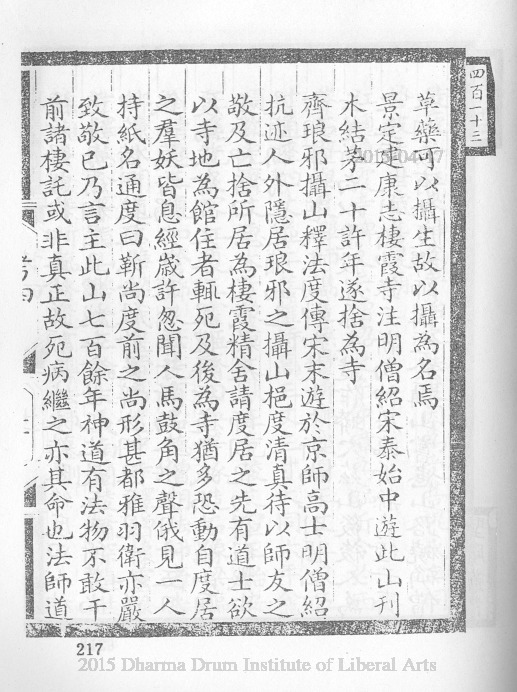 四百一十三
草藥可以攝生故以攝為名焉
景定建康志棲霞寺注明僧紹宋泰始中遊此山刊
木結茅二十許年遂捨為寺
齊琅邪攝山釋法度傳宋末遊於京師高士明僧紹
抗迹人外隱居琅邪之攝山挹度清真待以師友之
敬及亡捨所居為棲霞精舍請度居之先有道士欲
以寺地為館住者輒死及後為寺猶多恐動自度居
之羣妖皆息經嵗許忽聞人馬鼓角之聲俄見一人
持紙名通度曰靳尚度前之尚形甚都雅羽衛亦嚴
致敬已乃言主此山七百餘年神道有法物不敢干
前諸棲託或非真正故死病繼之亦其命也法師道
217
2015/04/17
2015 Dharma Drum Institute of Liberal Arts